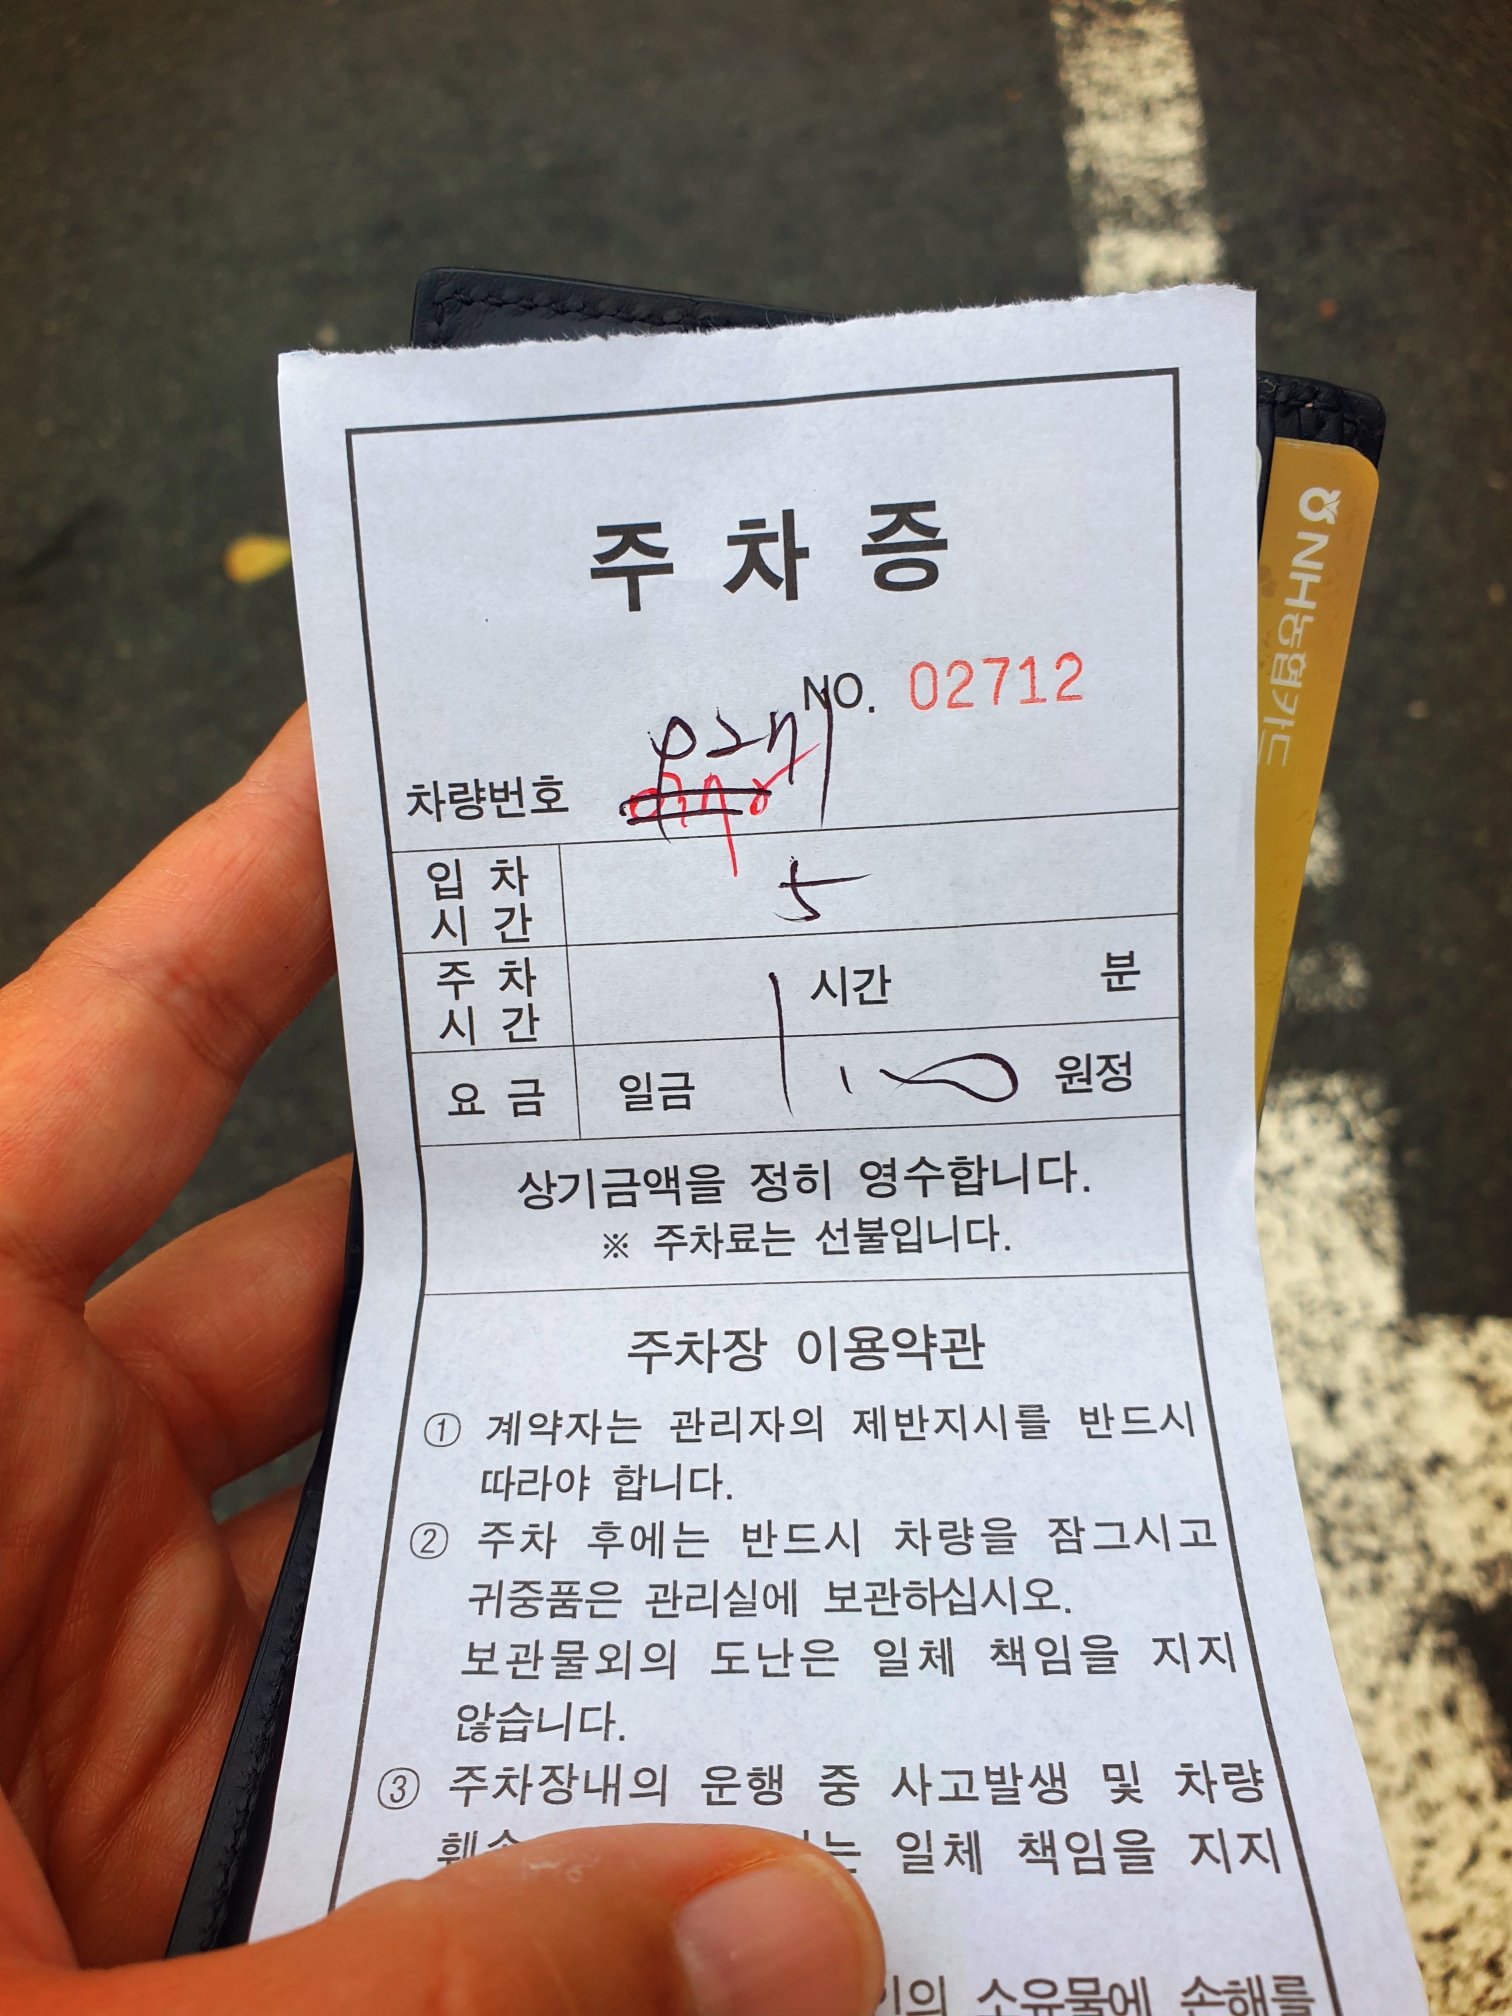 주 차 증
NO. 02712
차량번호
입 차
시 간
5
주 차
시 간
시간 분
요 금 일금 원정
상기금액을 정히 영수합니다.
※ 주차료는 선불입니다.
주차장 이용약관
① 계약자는 관리자의 제반지시를 반드시
따라야 합니다.
② 주차 후에는 반드시 차량을 잠그시고
귀중품은 관리실에 보관하십시오.
보관물외의 도난은 일체 책임을 지지
않습니다.
③ 주차장내의 운행 중 사고발생 및 차량
일체 책임을 지지
소유물에 손해를
NH농협카드